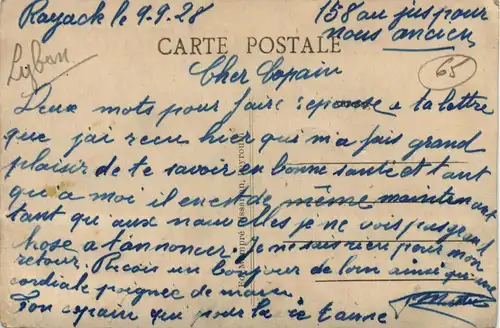 Rayack le 9-9-28
158 au jus pour
nous anciens
CARTE POSTALE
Lyban
65
Cher Copain
Deux mots pour faire reponse a ta lettre
que j'ai recu hier qui m'a fais grand
plaisir de te savoir en bonne santé et tant
qu'a moi il en est de même maintenant
tant qu'aux nouvelles je ne vois pas grand
chose a t'annoncer. Je ne sais rien pour mon
retour. Recois un bonjour de loin ainsi qu'une
cordiale poignee de main
Ton copain qui pour la vie